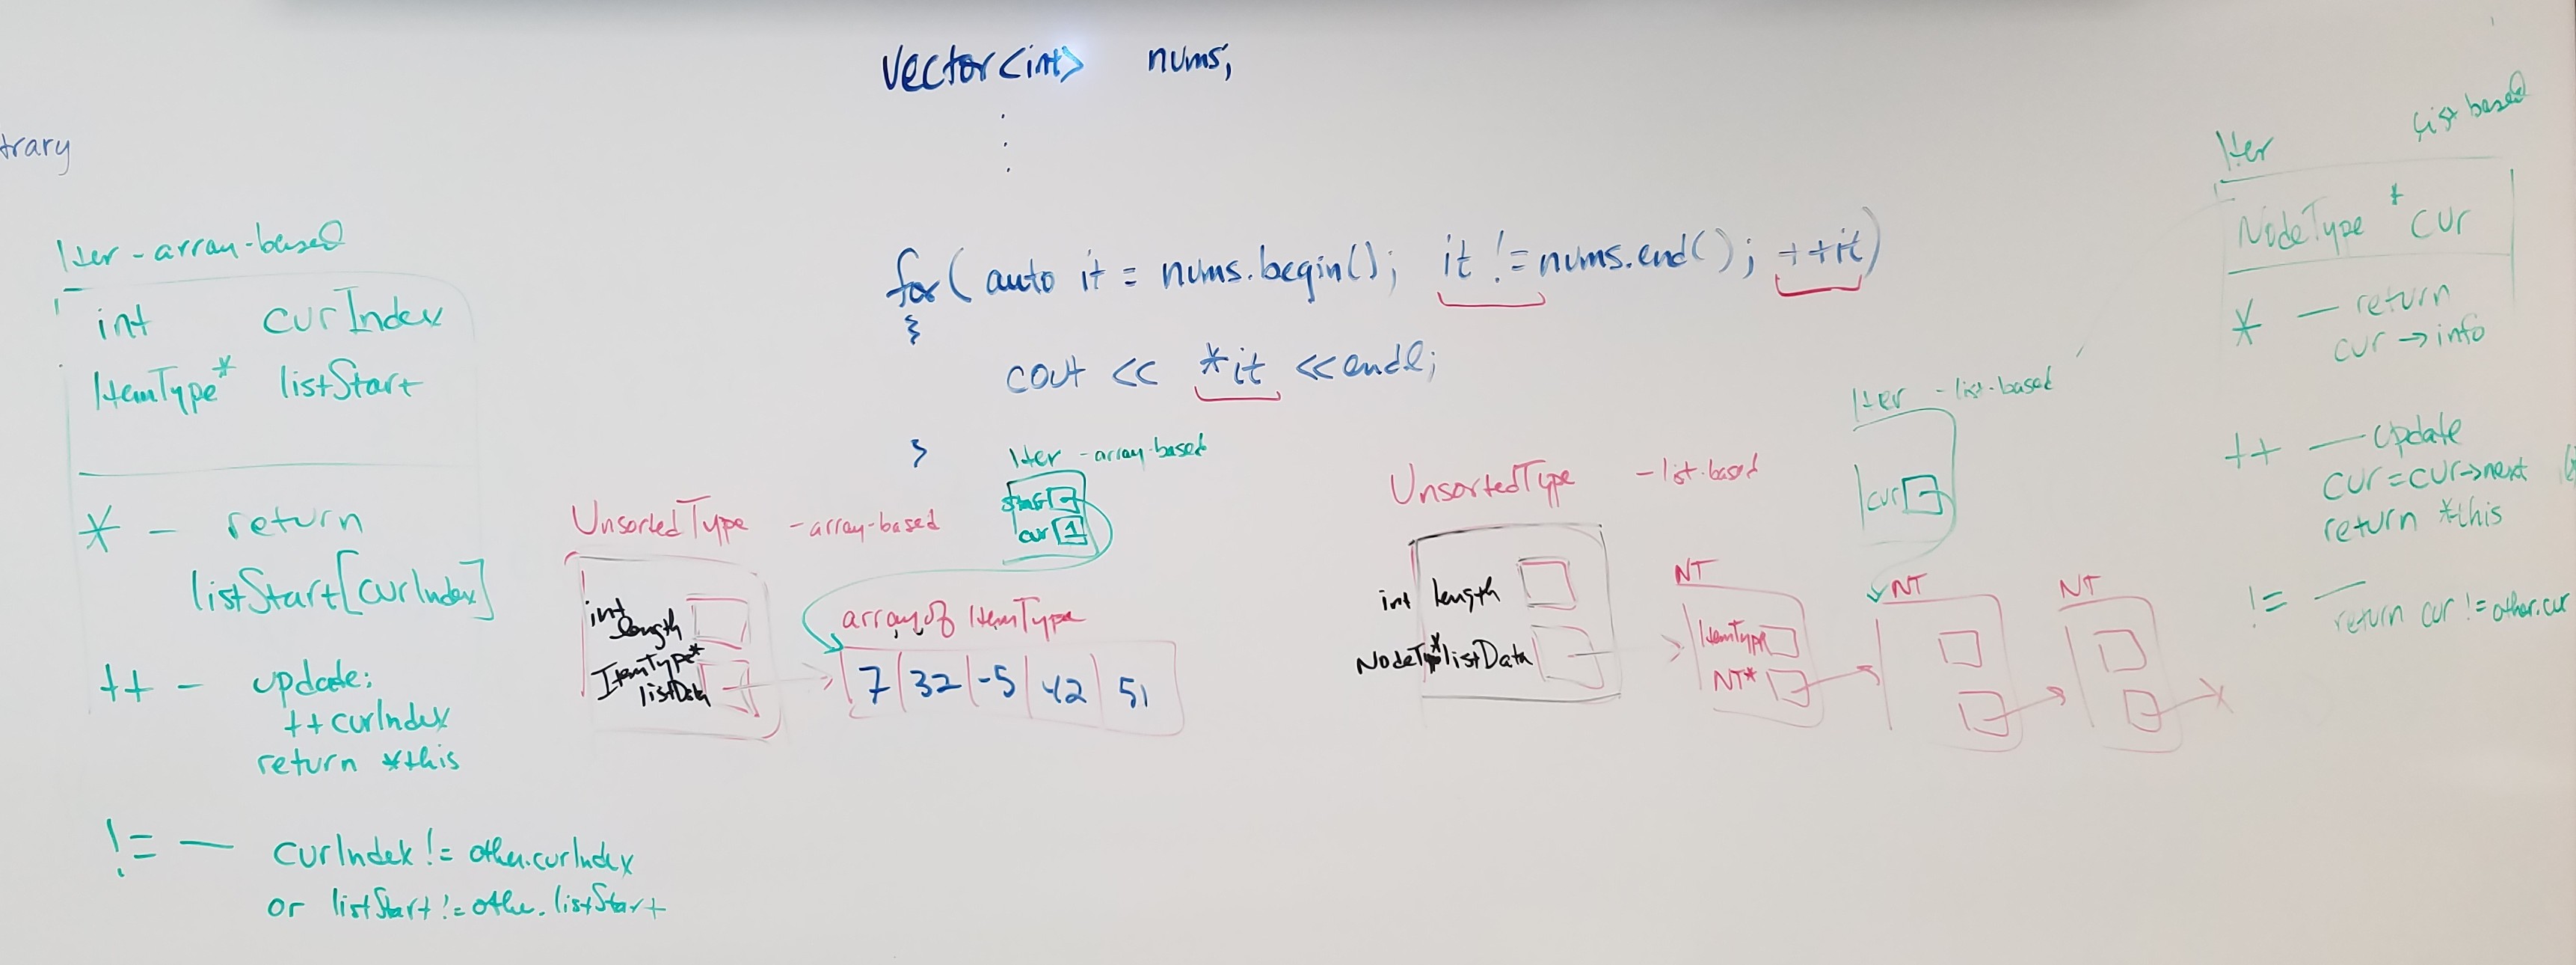 vector<int> nums;
for( auto it = nums.begin(); it != nums.end(); ++it)
{
cout << *it << endl;
}
Iter - array-based
int curIndex
ItemType* listStart
* - return
listStart[curIndex]
++ - update:
++curIndex
return *this
!= — curIndex != other.curIndex
or listStart != othe.listStart
UnsortedType - array-based
int
length
ItemType*
listData
Iter - array-based
start
cur 1
array of ItemType
7 32 -5 42 51
UnsortedType - list-based
int length
NodeType* listData
NT
ItemType
NT*
Iter - list-based
cur
NT
NT
Iter List based
NodeType * cur
* — return
cur → info
++ — update
cur = cur→next
return *this
!= —
return cur != other.cur